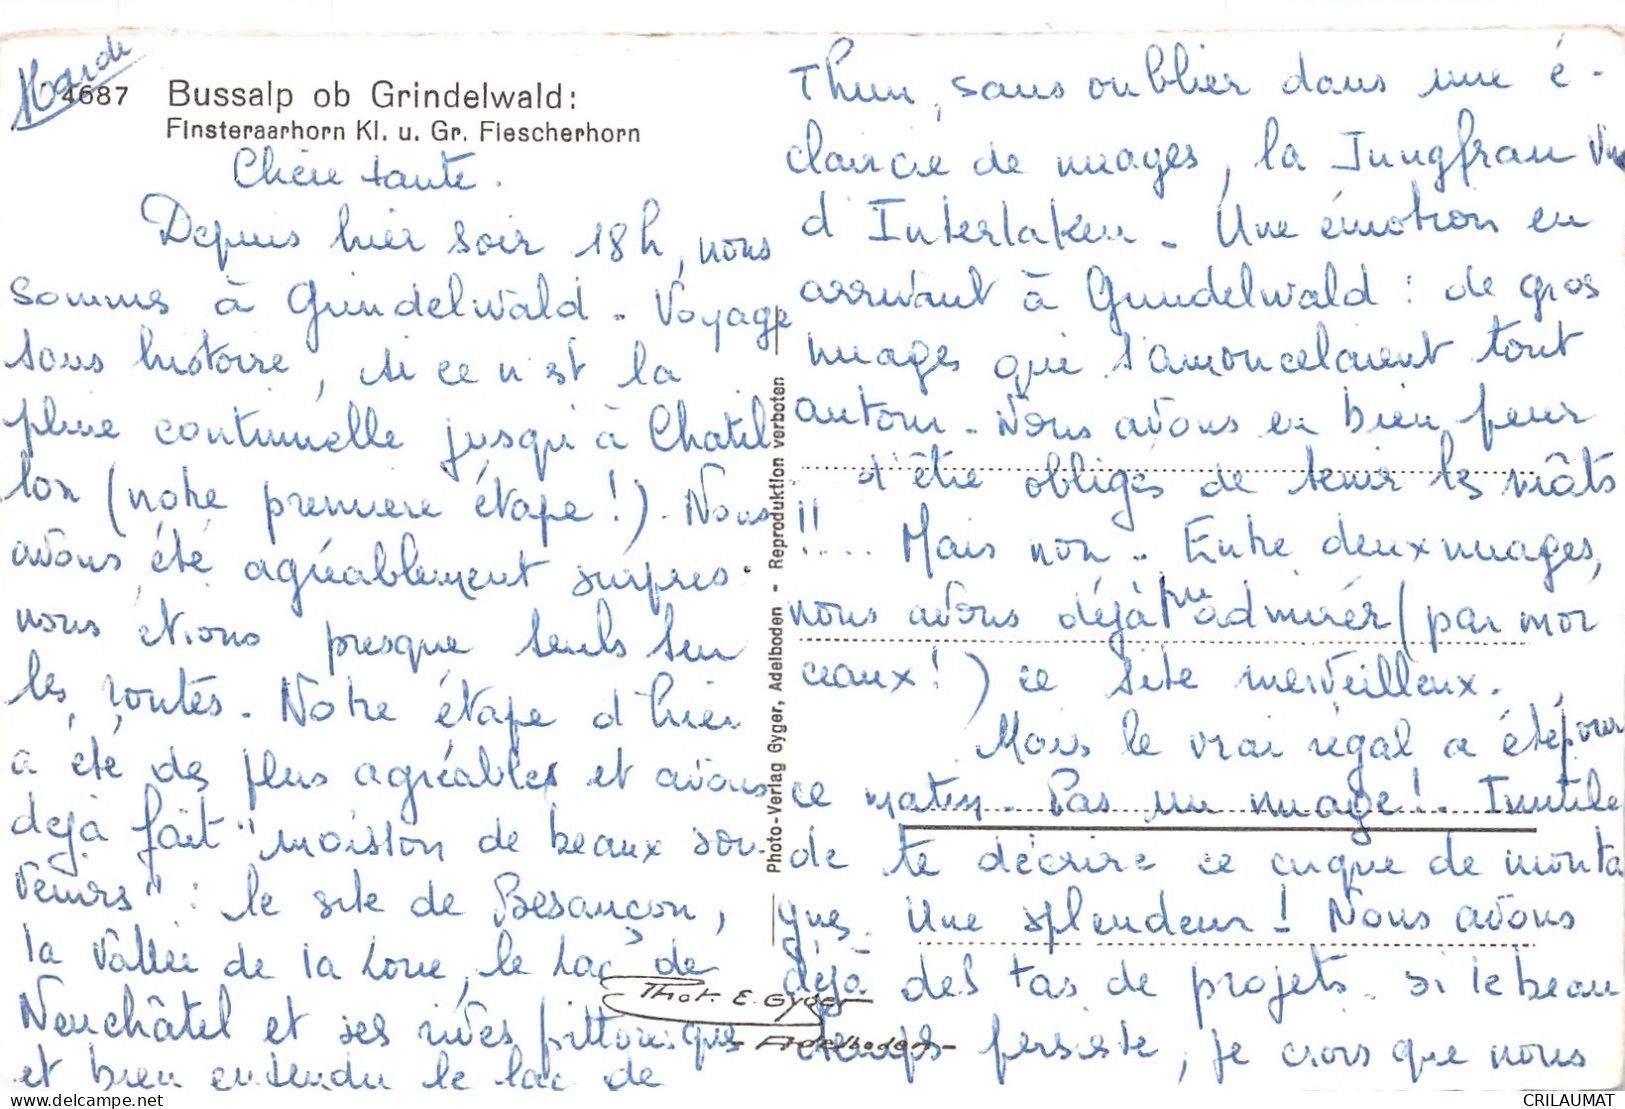 Mardi
4687 Bussalp ob Grindelwald:
Finsteraarhorn Kl. u. Gr. Fiescherhorn
Chère tante.
Depuis hier soir 18h, nous
sommes à Grindelwald - Voyage
sans histoire, si ce n'est la
pluie continuelle jusqu'à Chatil
lon (notre première étape!). Nous
avons été agréablement surpris.
nous étions presque seuls sur
les routes. Notre étape d'hier
a été des plus agréables et avons
déjà fait "moisson de beaux sou-
venirs" : le site de Besançon,
la vallée de la Loue, le Lac de
Neuchâtel et ses rives pittoresques
et bien entendu le lac de
Thun, sans oublier dans une é-
claircie de nuages, la Jungfrau vue
d'Interlaken. Une émotion en
arrivant à Grindelwald : de gros
nuages qui s'amoncelaient tout
autour. Nous avons eu bien peur
d'être obligés de tenir les mâts
!!... Mais non.. Entre deux nuages,
nous avons déjà pu admirer (par mor
ceaux!) ce site merveilleux.
Mais le vrai régal a été pour
ce matin. Pas un nuage!. Inutile
de te décrire ce cirque de monta
gnes. Une splendeur! Nous avons
déjà des tas de projets. Si le beau
temps persiste, je crois que nous
Photo-Verlag Gyger, Adelboden - Reproduktion verboten
Phot. E. Gyger
- Adelboden -
CRILAUMAT